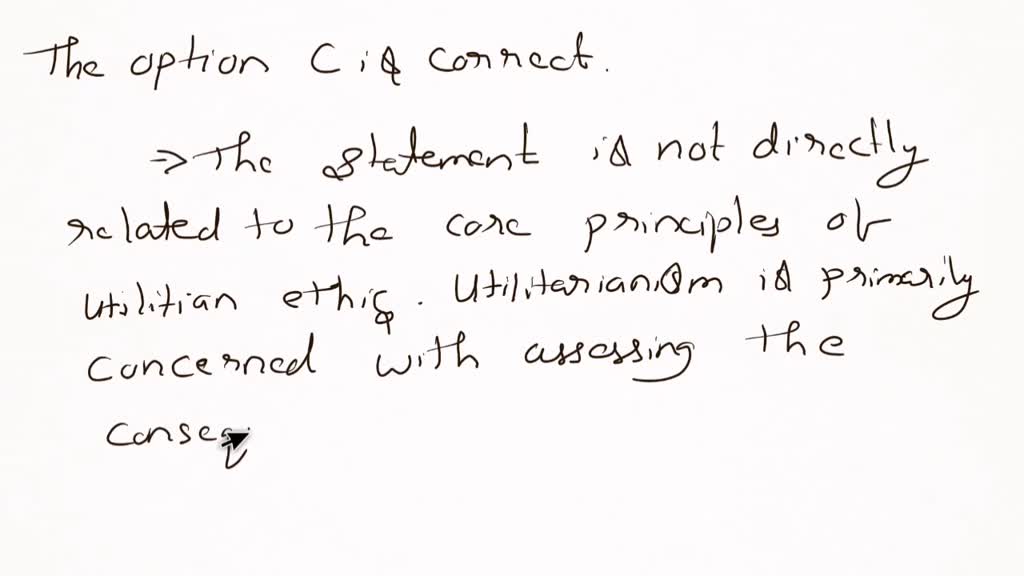 The option C is correct.
⇒ The statement is not directly
related to the core principles of
utilitian ethis. Utilitarianism is primarily
concerned with assessing the
conseq